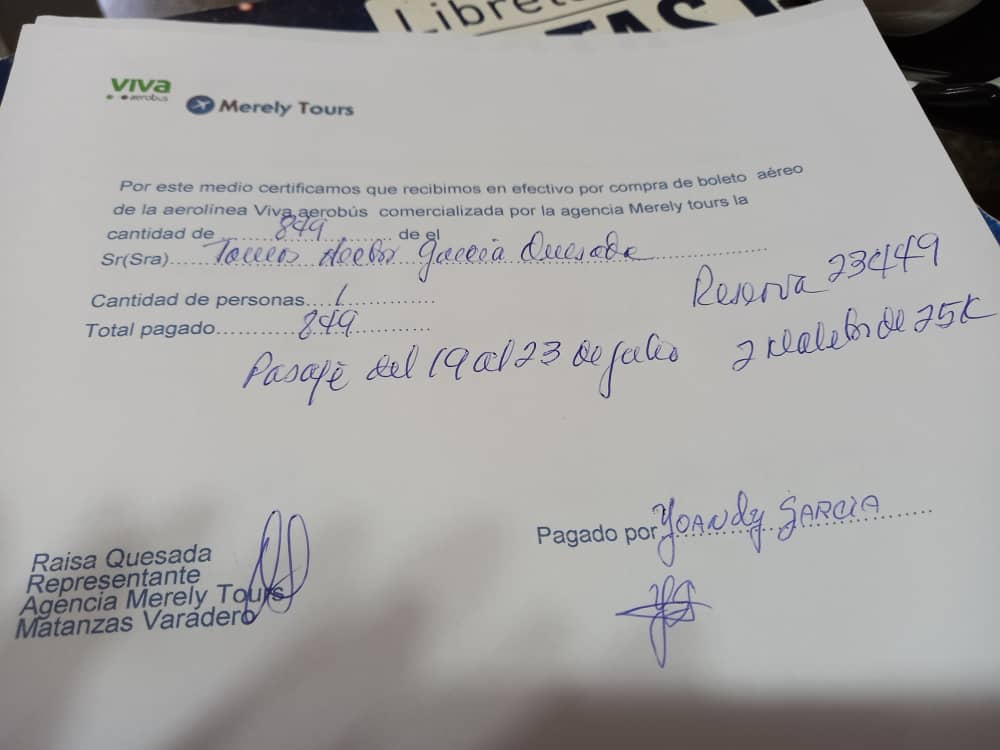 Libreta
TAS
viva
aerobus
Merely Tours
Por este medio certificamos que recibimos en efectivo por compra de boleto aéreo
de la aerolínea Viva aerobús comercializada por la agencia Merely tours la
cantidad de ...849... de el
Sr(Sra).... García Quesada
Cantidad de personas....1
Reserva 23449
Total pagado...........849
Pasaje del 19 al 23 de julio 2 de 25K
Pagado por Yoandy García
Raisa Quesada
Representante
Agencia Merely Tours
Matanzas Varadero